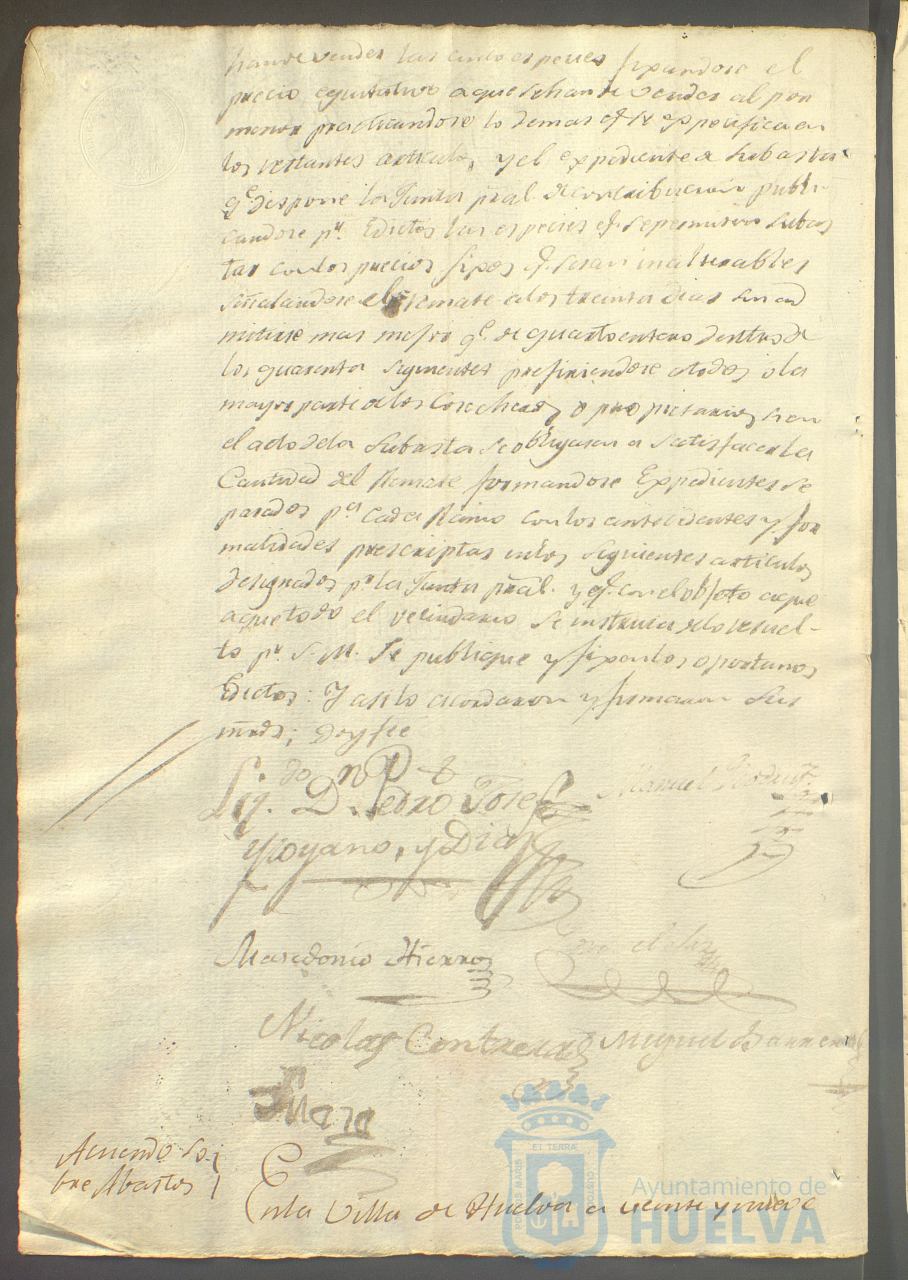 han de vender las cinco especies fixandose el
precio equitativo a que se han de vender al por
menor practicandose lo demas qe. se expecifica en
los restantes articulos, y el expediente de subastas
qe. dispone la Junta pral. de contribucion publi-
candose pr. Edictos las especies qe. se permiten subas
tar con los precios fixos qe. seran inalterables
señalandose el remate a los treinta dias sin ad
mitirse mas mejora qe. de quarto entero dentro de
los quarenta siguientes prefiriendose a todos o la
mayor parte de los Cosecheros, o propietarios si en
el acto de la Subasta se obligasen a satisfacer la
Cantidad del Remate formandose Expedientes se
parados pa. cada Ramo con los antecedentes y for
malidades prescriptas en los siguientes articulos
designados pr. la Junta pral. y qe. con el objeto de que
a que todo el vecindario se instruia de lo resuel-
to pr. S. M. se publique y fixen los oportunos
Edictos: Y asi lo acordaron y firmaron sus
mrds; doy fee
Liz.do Dn Pedro Josef
Manuel
y Díaz
Macedonio Hierro
Jose
Nicolas Contreras
Miguel Barrera
Acuerdo so-
bre Abastos
En la Villa de Huelva a veinte y nueve
ET TERRÆ
PORTUS MARIS
CUSTODIA
Ayuntamiento de
HUELVA